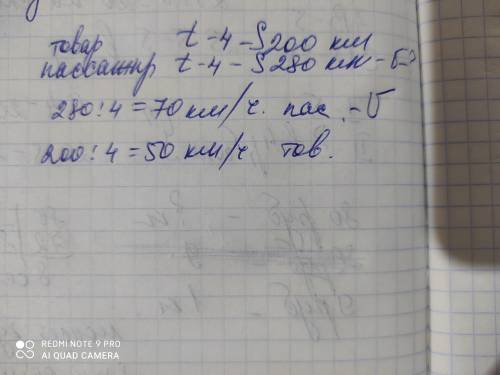 товар t - 4 - S 200 км
пассажир t - 4 - S 280 км - V - ?
280 : 4 = 70 км/ч. пас. - V
200 : 4 = 50 км/ч тов.
REDMI NOTE 9 PRO
AI QUAD CAMERA